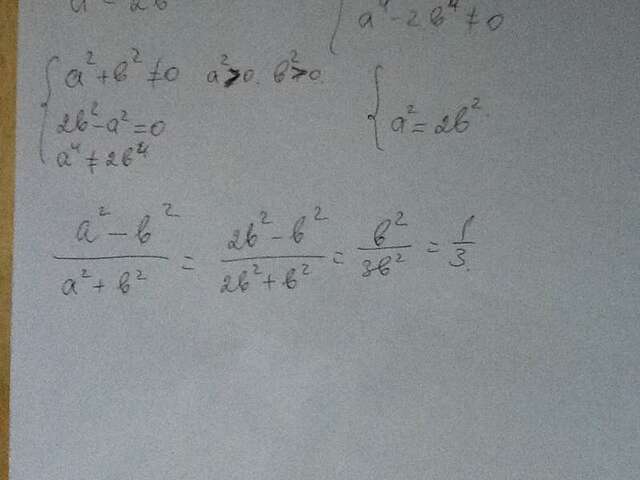 a⁴ - 2b⁴ ≠ 0
a² + b² ≠ 0 a² > 0. b² > 0.
2b² - a² = 0
a⁴ ≠ 2b⁴
a² = 2b²
(a² - b²)/(a² + b²) = (2b² - b²)/(2b² + b²) = b²/3b² = 1/3.